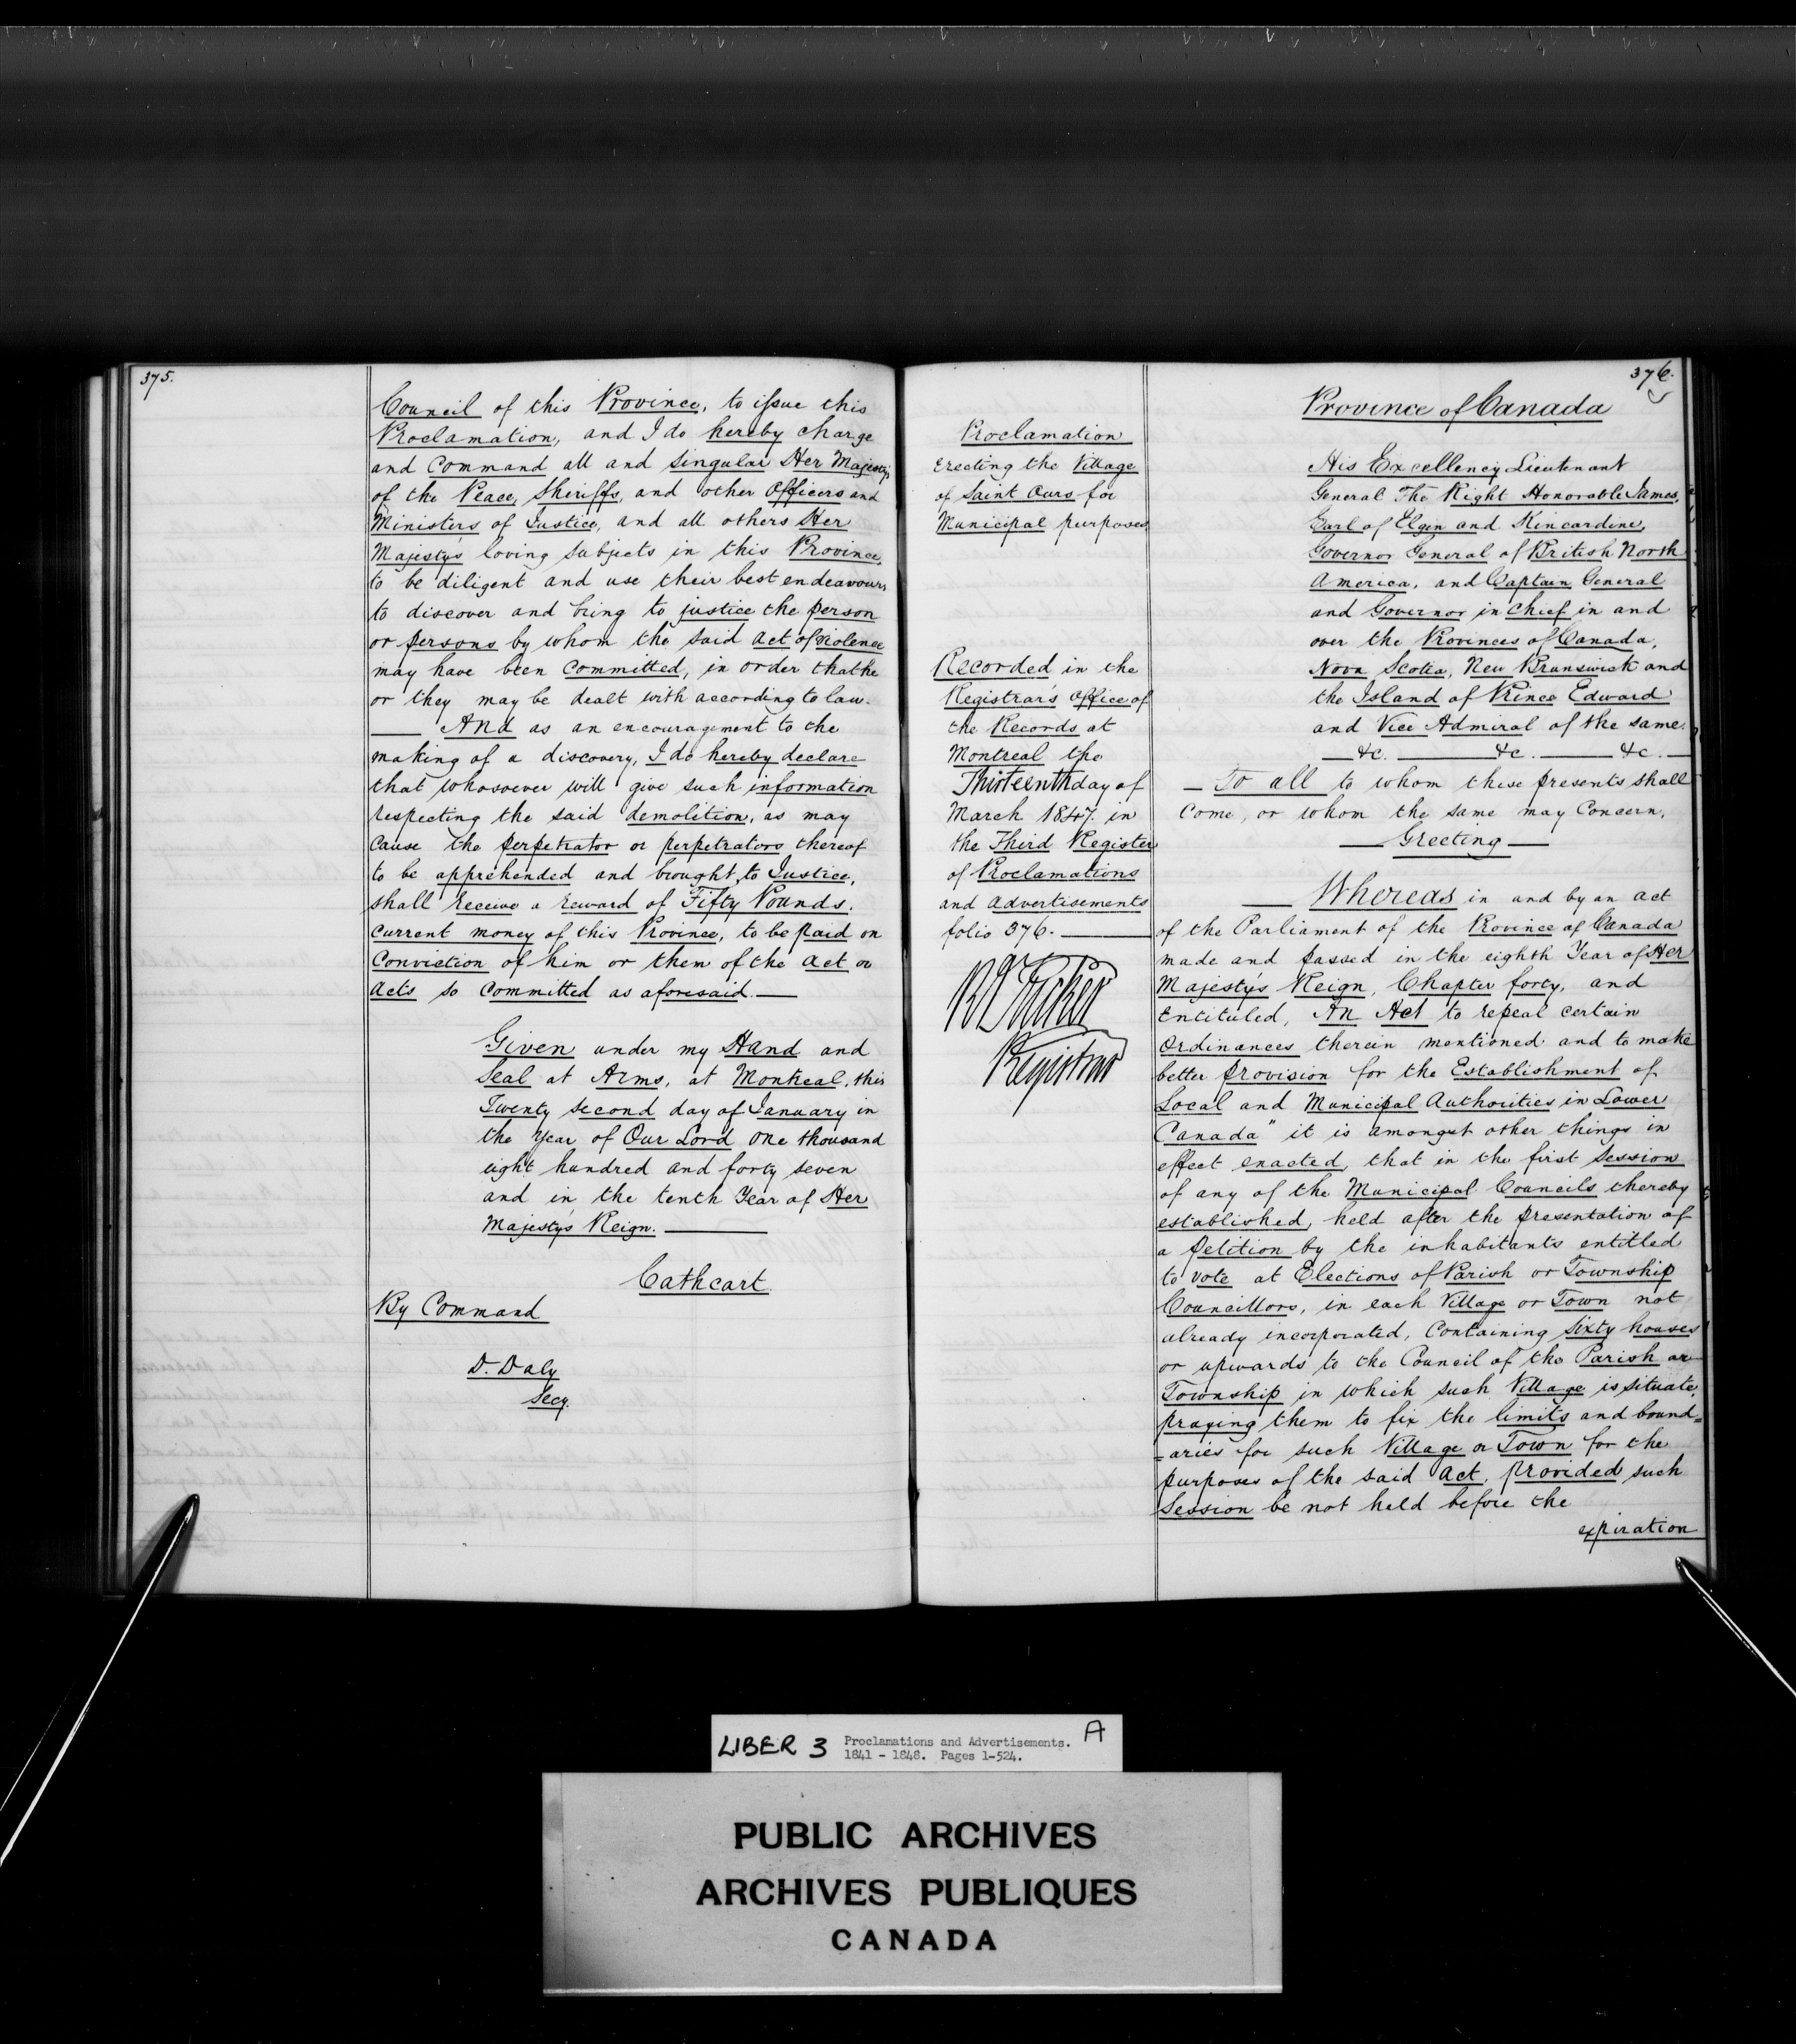 375.
Council of this Province, to issue this
Proclamation, and I do hereby charge
and Command all and Singular Her Majesty's
of the Peace, Sheriffs, and other Officers and
Ministers of Justice, and all others Her
Majesty's loving Subjects in this Province,
to be diligent and use their best endeavours
to discover and bring to justice the person
or persons by whom the said act of violence
may have been Committed, in order that he
or they may be dealt with according to law.
And as an encouragement to the
making of a discovery, I do hereby declare
that whosoever will give such information
respecting the said demolition, as may
Cause the perpetrator or perpetrators thereof
to be apprehended and brought to Justice,
shall receive a reward of Fifty Pounds.
Current money of this Province, to be paid on
Conviction of him or them of the act or
acts so Committed as aforesaid.
Given under my Hand and
Seal at Arms, at Montreal, this
Twenty second day of January in
the Year of Our Lord One thousand
eight hundred and forty seven
and in the tenth Year of Her
Majesty's Reign.
Cathcart
By Command
D. Daly
Secy.
376.
Proclamation
Erecting the Village
of Saint Ours for
Municipal purposes
Recorded in the
Registrar's Office of
the Records at
Montreal the
Thirteenth day of
March 1847. in
the Third Register
of Proclamations
and Advertisements
folio 376.
Registrar
Province of Canada
His Excellency Lieutenant
General The Right Honorable James,
Earl of Elgin and Kincardine,
Governor General of British North
America, and Captain General
and Governor in Chief in and
over the Provinces of Canada,
Nova Scotia, New Brunswick and
the Island of Prince Edward
and Vice Admiral of the same.
&c. &c. &c.
To all to whom these presents shall
Come, or whom the same may Concern,
Greeting
Whereas in and by an act
of the Parliament of the Province of Canada
made and passed in the eighth Year of Her
Majesty's Reign, Chapter forty, and
Entituled, An Act to repeal certain
Ordinances therein mentioned and to make
better provision for the Establishment of
Local and Municipal Authorities in Lower
Canada" it is amongst other things in
effect enacted, that in the first Session
of any of the Municipal Councils thereby
established, held after the presentation of
a petition by the inhabitants entitled
to vote at Elections of Parish or Township
Councillors, in each Village or Town not
already incorporated, Containing Sixty houses
or upwards to the Council of the Parish or
Township in which such Village is situate,
praying them to fix the limits and bound=
=aries for such Village or Town for the
purposes of the said Act, provided such
Session be not held before the
expiration
LIBER 3 Proclamations and Advertisements. A
1841 - 1848. Pages 1-524.
PUBLIC ARCHIVES
ARCHIVES PUBLIQUES
CANADA